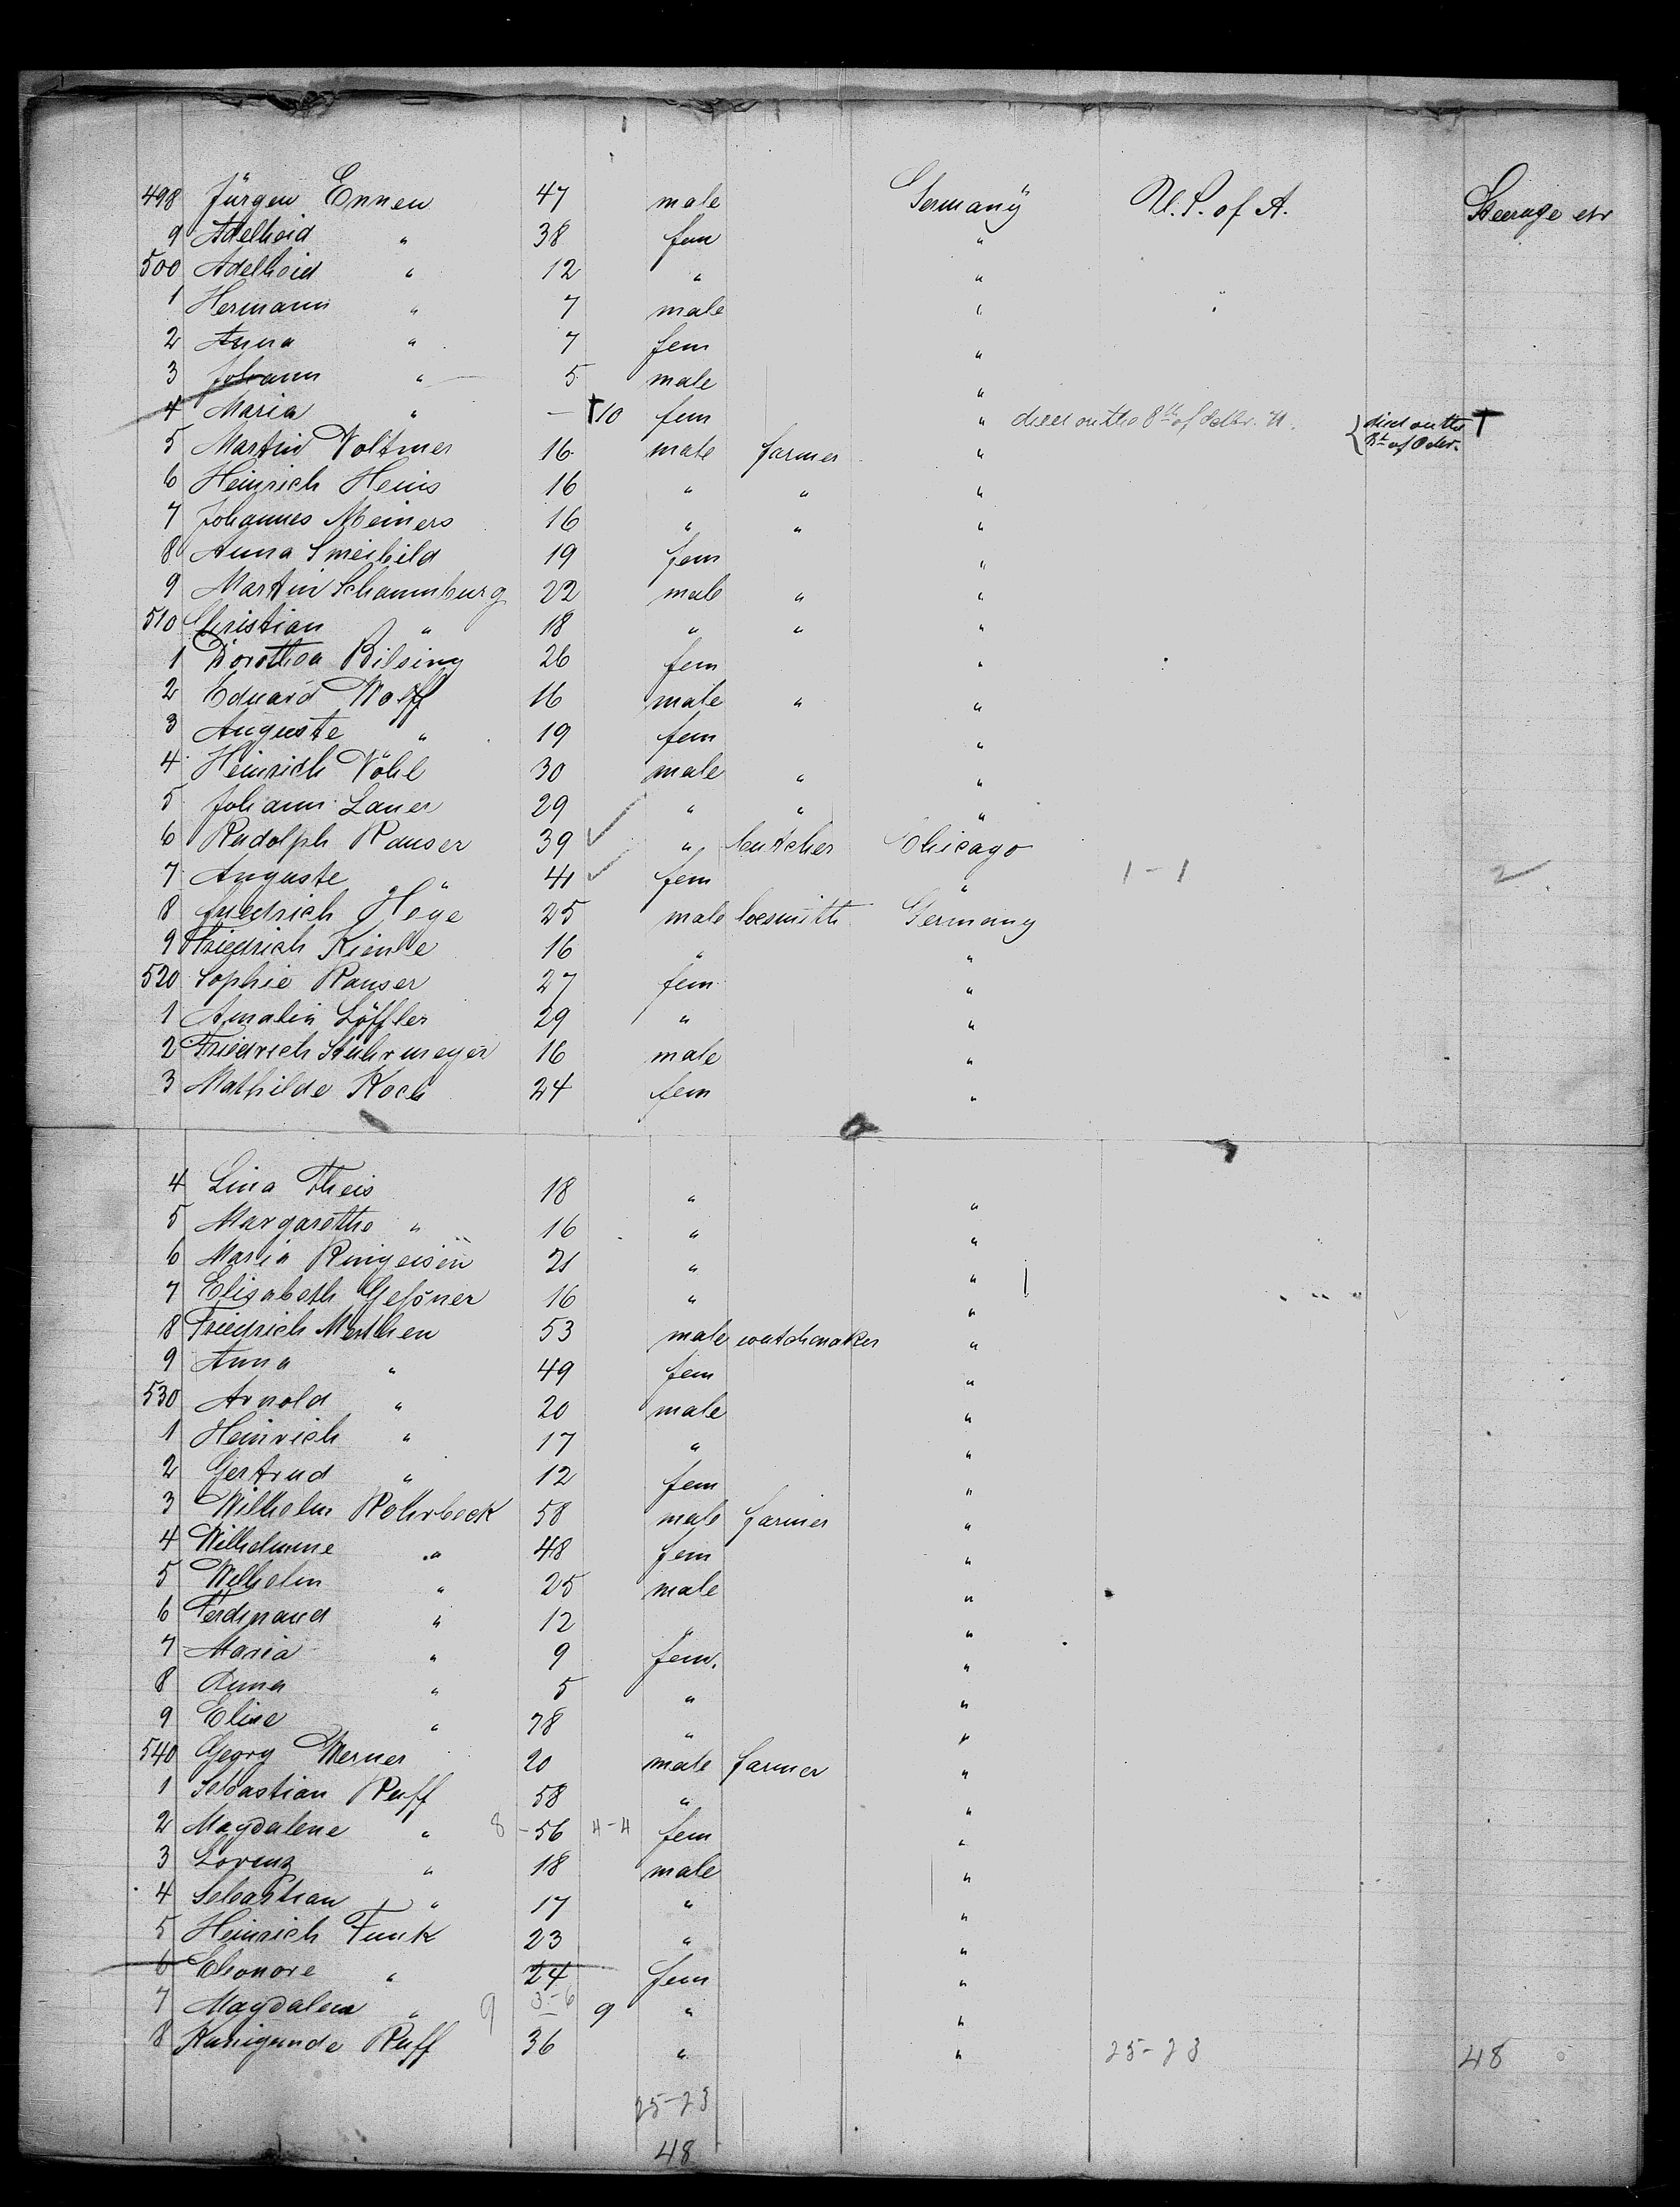 498 Jürgen Ennen 47 male Germany U.S. of A. Steerage
9 Adelheid " 38 fem "
500 Adelheid " 12 " "
1 Hermann " 7 male "
2 Anna " 7 fem "
3 Johann " 5 male "
4 Maria " - †10 fem " died on the 8th of died on the 8th of †
5 Martin Voltmer 16 male farmer "
6 Heinrich Heins 16 " " "
7 Johannes Meiners 16 " " "
8 Anna 19 fem "
9 Martin Schaumburg 22 male " "
510 Christian " 18 " " "
1 Dorothea Bilsing 26 fem "
2 Eduard Wolff 16 male " "
3 Auguste " 19 fem "
4 Heinrich Vöhl 30 male " "
5 Johann Lauer 29 " " "
6 Rudolph Rauser 39 " butcher Chicago
7 Auguste " 41 fem " 1-1 2
8 Friedrich Hege 25 male locsmith Germany
9 Friedrich Kienle 16 " "
520 Sophie Rauser 27 fem "
1 Amalia Löffler 29 " "
2 Friedrich Stuhrmeyer 16 male "
3 Mathilde Koch 24 fem "
4 Lina Theis 18 " "
5 Margarethe " 16 " "
6 Maria Ringeisen 21 " "
7 Elisabeth Geßner 16 " "
8 Friedrich Merthen 53 male watchmaker "
9 Anna " 49 fem "
530 Arnold " 20 male "
1 Heinrich " 17 " "
2 Gertrud " 12 fem "
3 Wilhelm Rohrbeck 58 male farmer "
4 Wilhelmine " 48 fem "
5 Wilhelm " 25 male "
6 Ferdinand " 12 " "
7 Maria " 9 fem. "
8 Anna " 5 " "
9 Elise " 78 " "
540 Georg Werner 20 male farmer "
1 Sebastian Ruff 58 " "
2 Magdalene " 8 - 56 4-4 fem "
3 Lorenz " 18 male "
4 Sebastian " 17 " "
5 Heinrich Funk 23 " "
6 Eleonore " 24 fem "
7 Magdalena " 9 3-6 9 " "
8 Kunigunde Ruff 36 " " 25-23 48
25-23
48